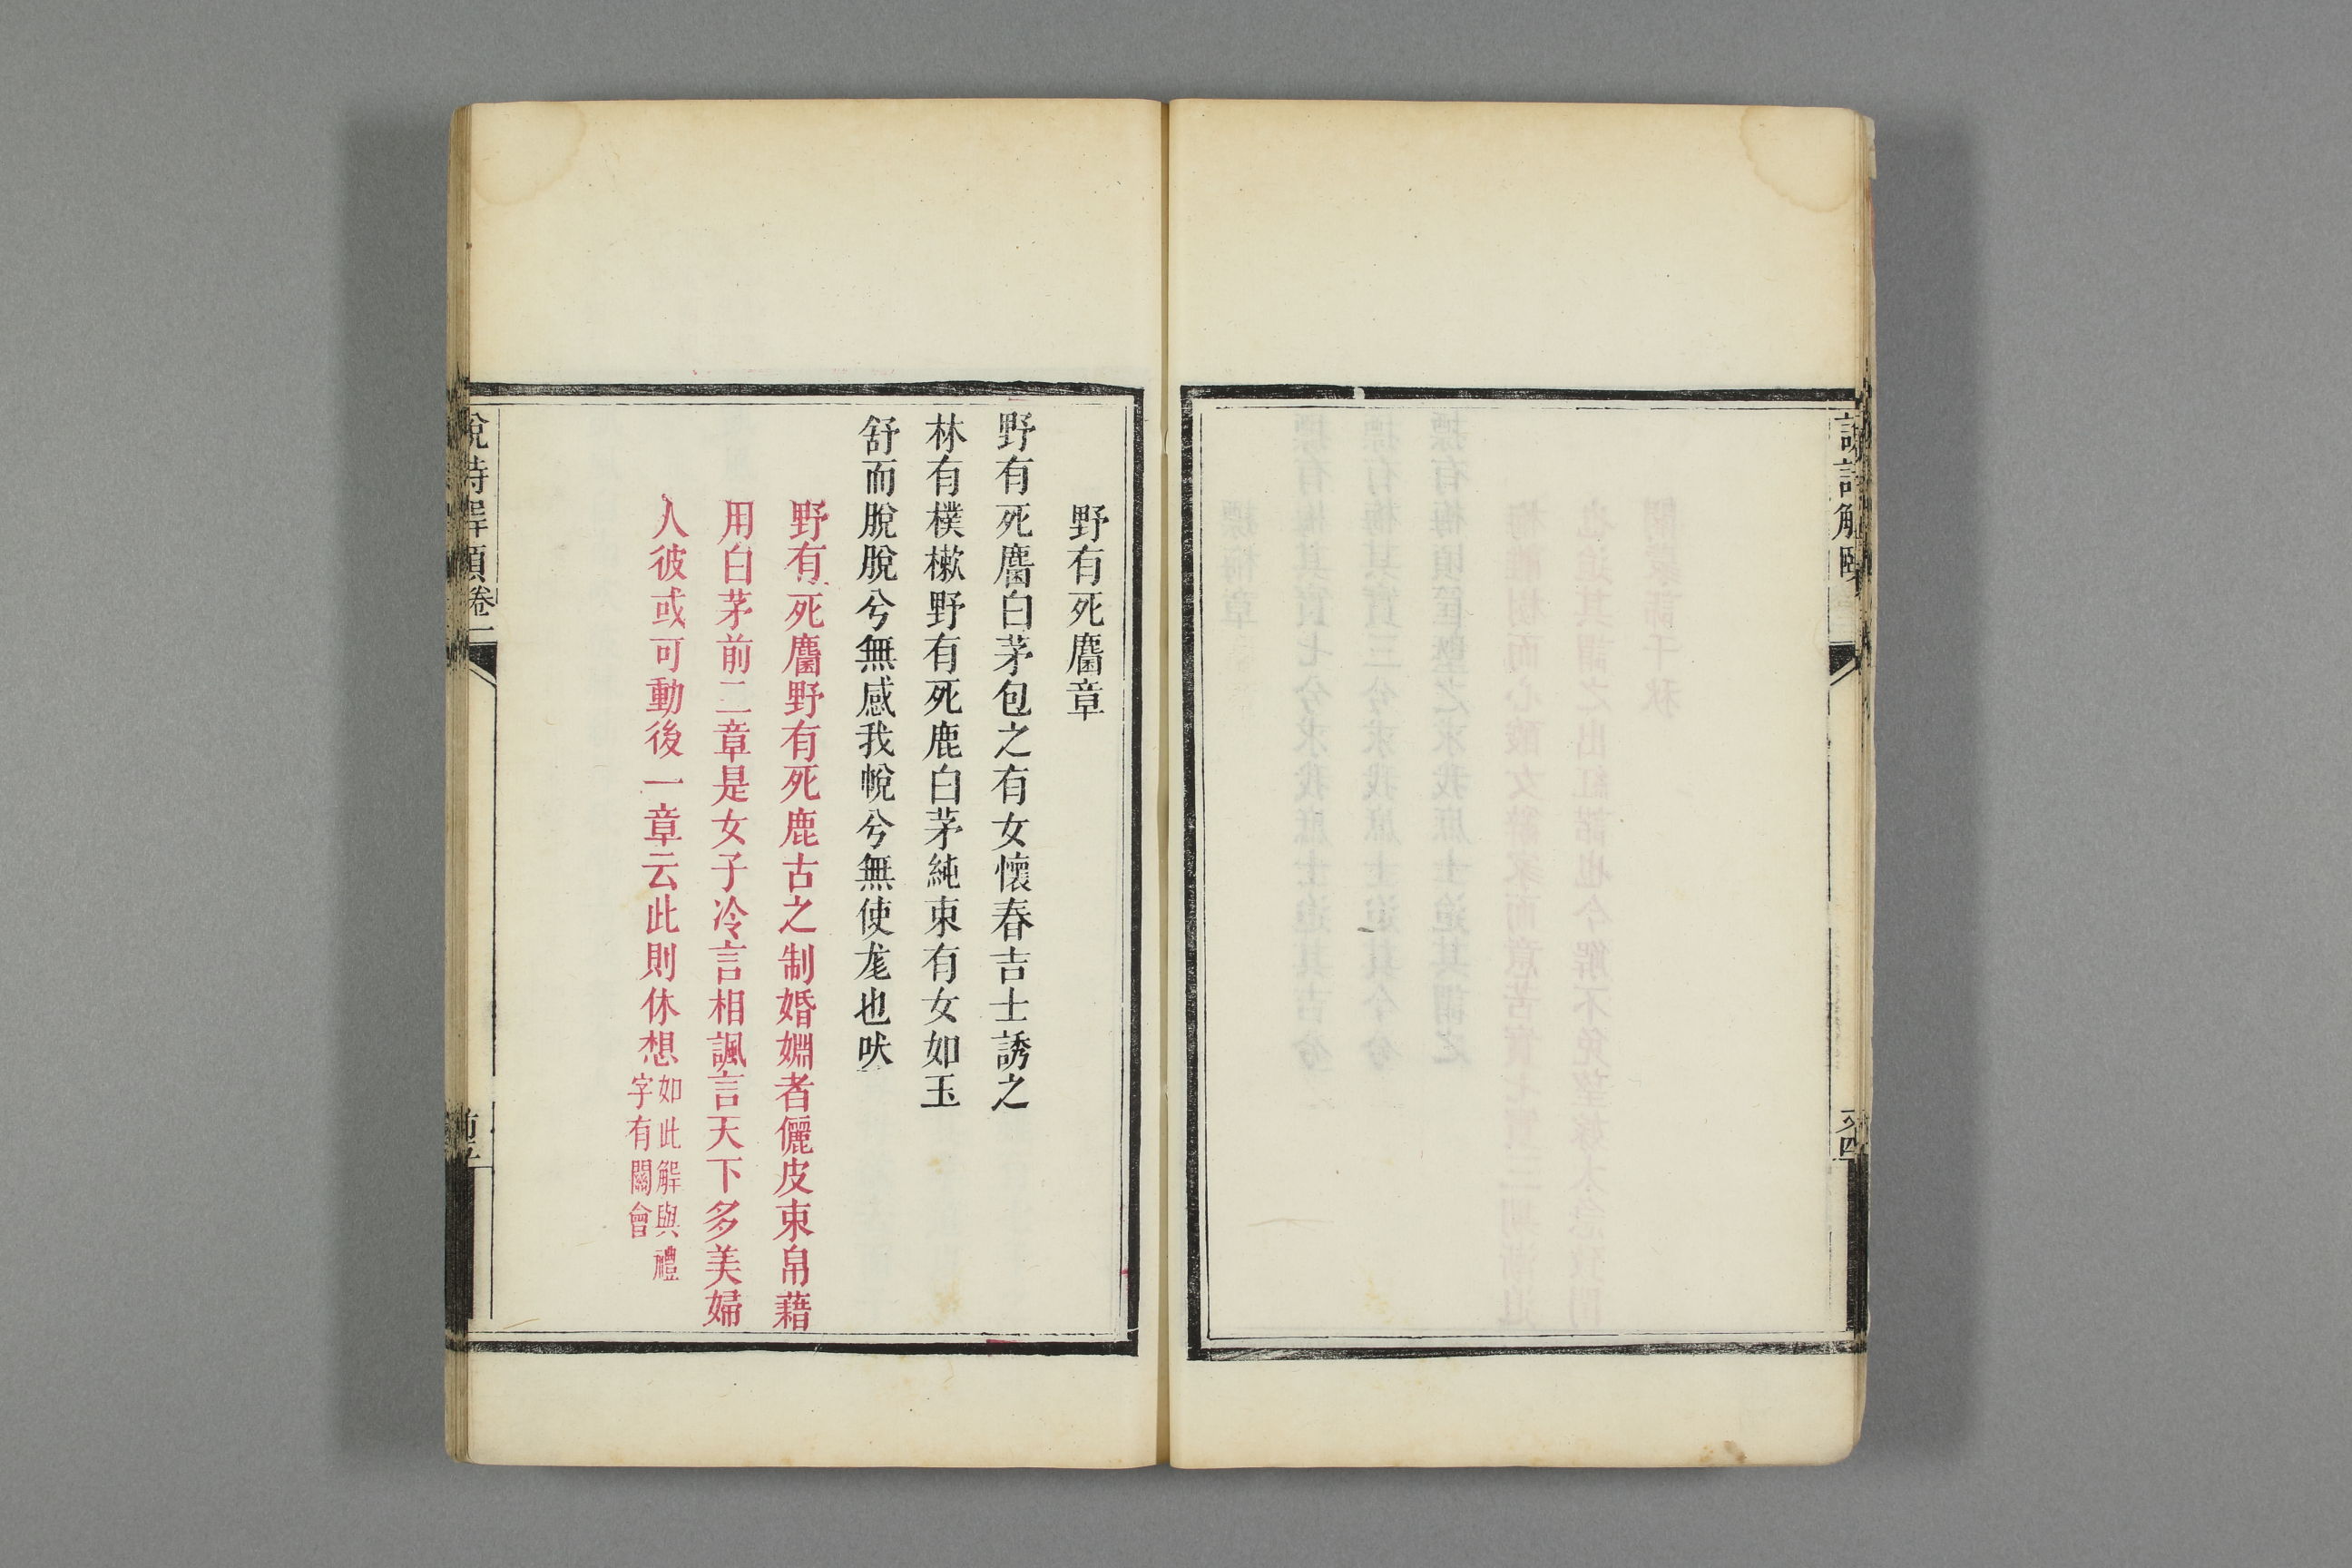 野有死麕章
野有死麕白茅包之有女懷春吉士誘之
林有樸樕野有死鹿白茅純束有女如玉
舒而脫脫兮無感我帨兮無使尨也吠
野有死麕野有死鹿古之制婚婣者儷皮束帛藉
用白茅前二章是女子冷言相諷言天下多美婦
人彼或可動後一章云此則休想
如此解與禮
字有關會
卷一